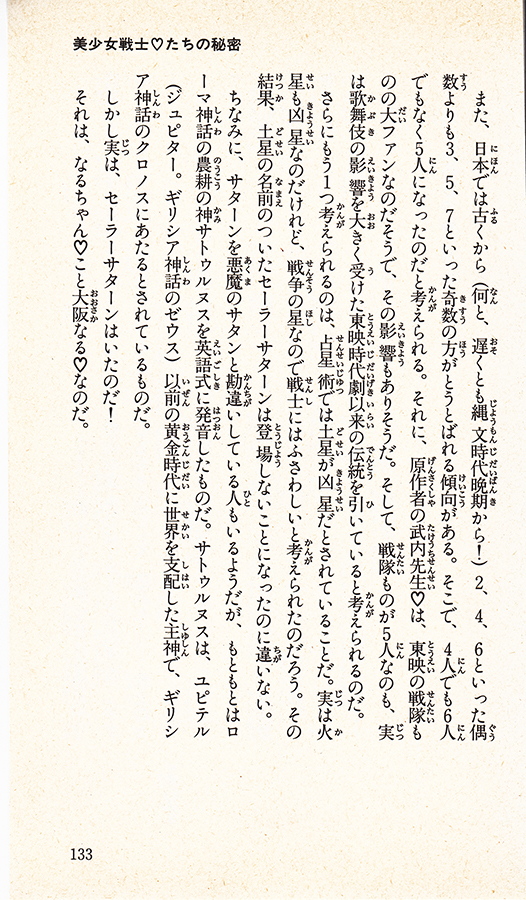 美少女戦士♡たちの秘密
また、日本では古くから（何と、遅くとも縄文時代晩期から！）2、4、6といった偶
数よりも3、5、7といった奇数の方がとうとばれる傾向がある。そこで、4人でも6人
でもなく5人になったのだと考えられる。それに、原作者の武内先生♡は、東映の戦隊も
のの大ファンなのだそうで、その影響もありそうだ。そして、戦隊ものが5人なのも、実
は歌舞伎の影響を大きく受けた東映時代劇以来の伝統を引いていると考えられるのだ。
さらにもう1つ考えられるのは、占星術では土星が凶星だとされていることだ。実は火
星も凶星なのだけれど、戦争の星なので戦士にはふさわしいと考えられたのだろう。その
結果、土星の名前のついたセーラーサターンは登場しないことになったのに違いない。
ちなみに、サターンを悪魔のサタンと勘違いしている人もいるようだが、もともとはロ
ーマ神話の農耕の神サトゥルヌスを英語式に発音したものだ。サトゥルヌスは、ユピテル
（ジュピター。ギリシア神話のゼウス）以前の黄金時代に世界を支配した主神で、ギリシ
ア神話のクロノスにあたるとされているものだ。
しかし実は、セーラーサターンはいたのだ！
それは、なるちゃん♡こと大阪なる♡なのだ。
133